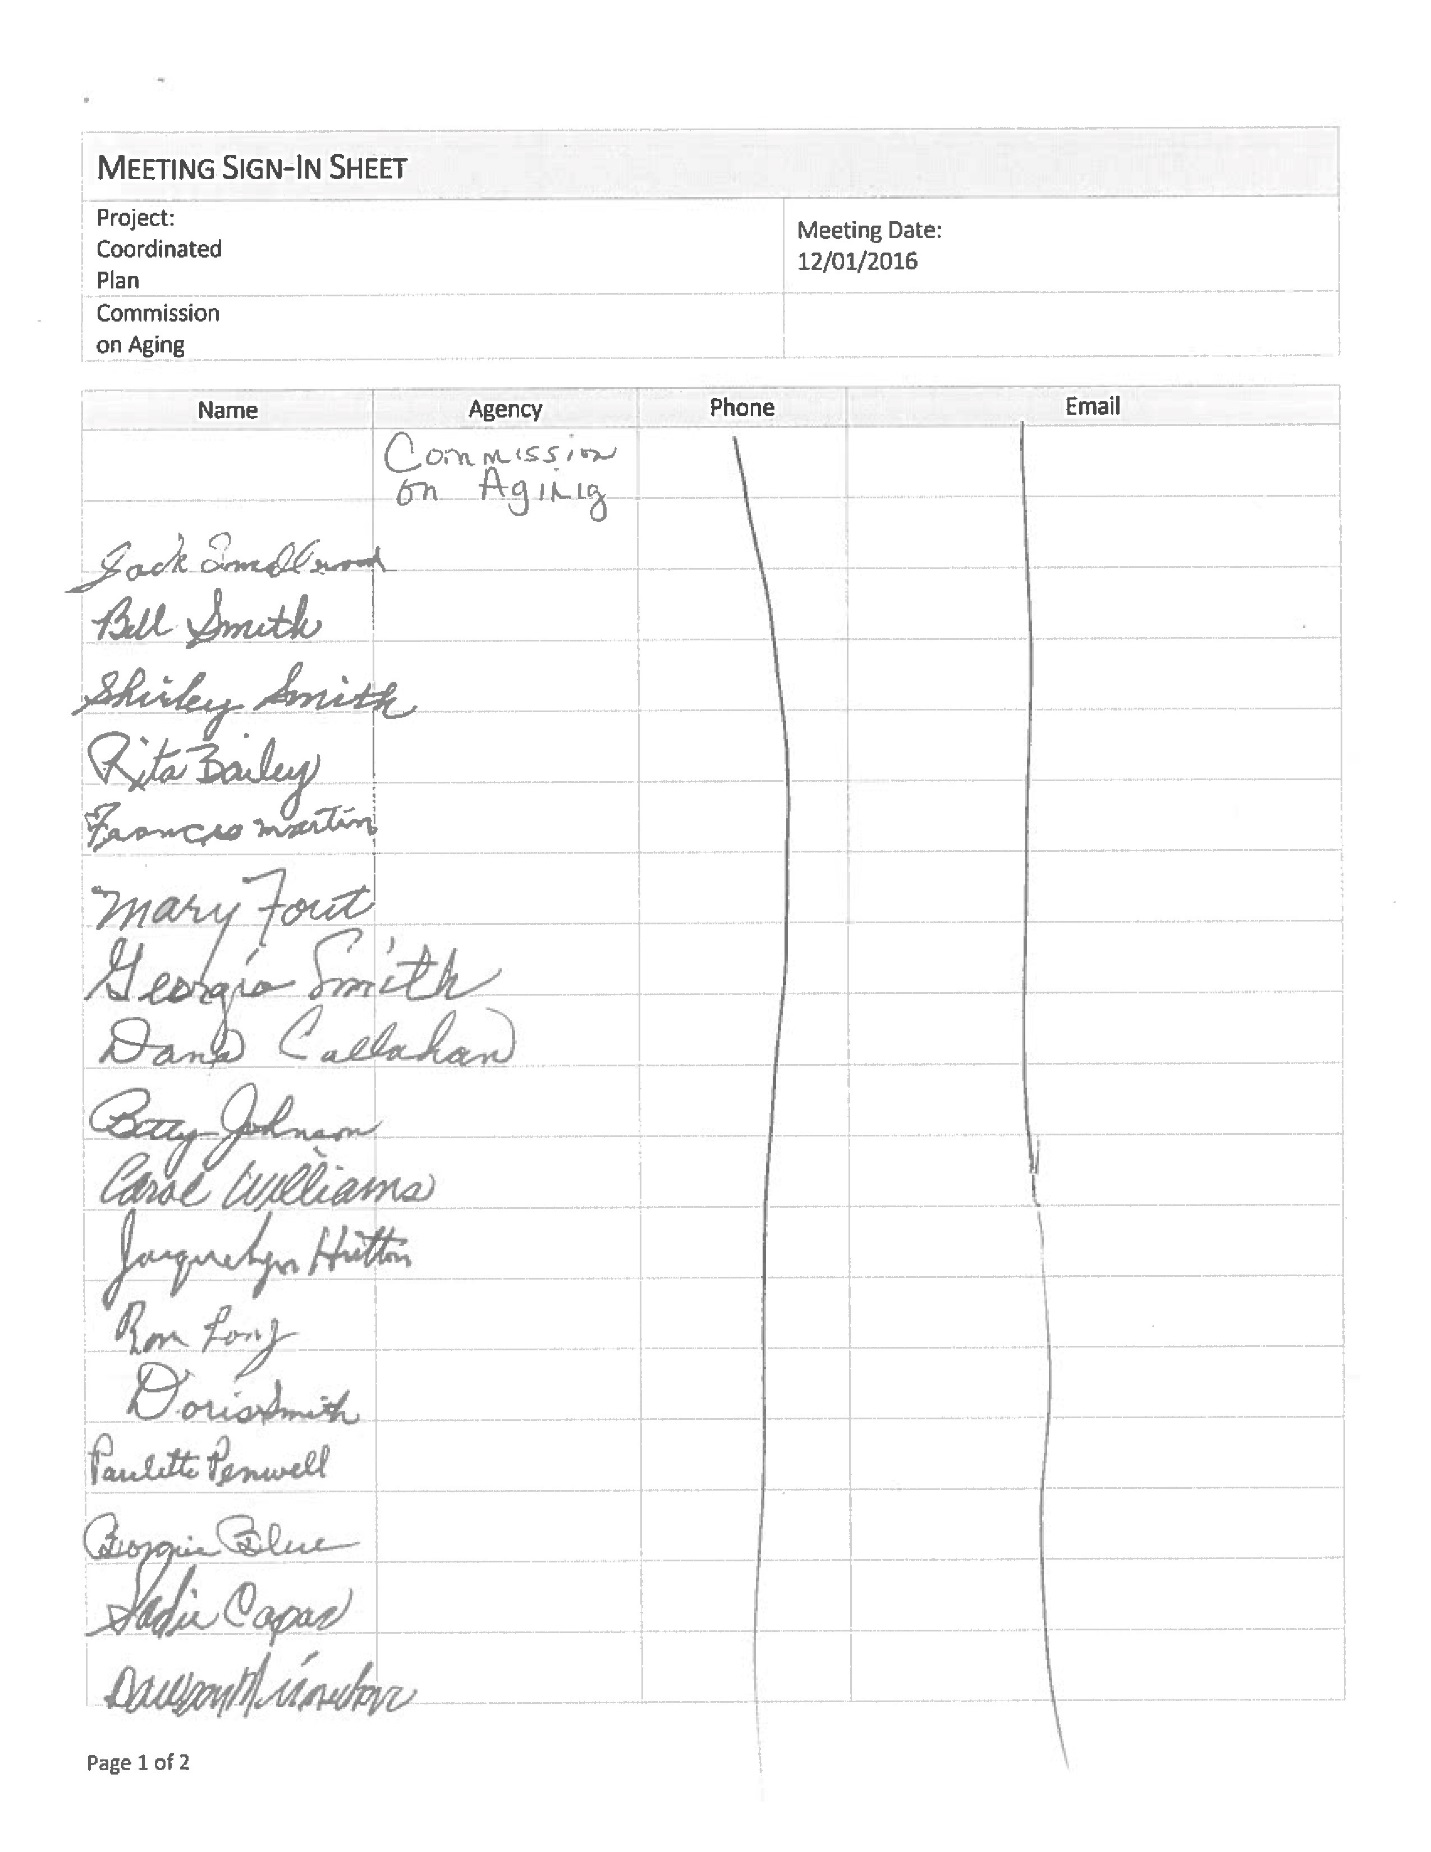 MEETING SIGN-IN SHEET
Project:
Coordinated
Plan
Meeting Date:
12/01/2016
Commission
on Aging
Name Agency Phone Email
Commission
on Aging
Jack Smallwood
Bill Smith
Shirley Smith
Rita Bailey
Frances Martin
Mary Fout
Georgia Smith
Dana Callahan
Betty Johnson
Carol Williams
Jacquelyn Hutton
Ron Long
Doris Smith
Paulette Penwell
Georgie Blue
Sadie Capas
Page 1 of 2